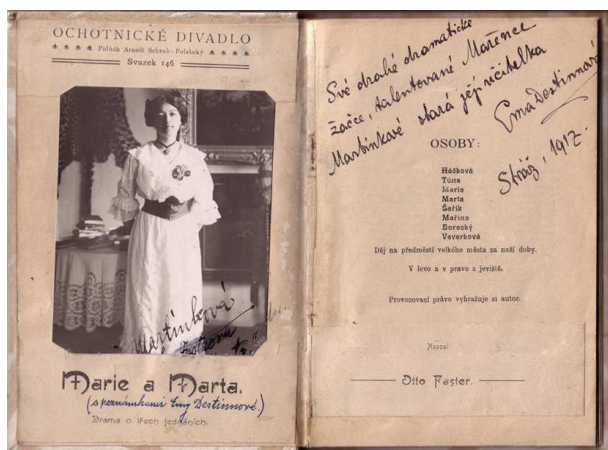 OCHOTNICKÉ DIVADLO
Pořádá Arnošt Schwab-Polabský
Svazek 146
Martínková
Marie a Marta.
(s poznámkami Emy Destinnové.)
Drama o třech jednáních.
Své drahé dramatické
žačce, talentované Mařence
Martínkové stará její učitelka
Ema Destinnová
Stráž, 1917.
OSOBY:
Háčková
Tóna
Marie
Marta
Šeřík
Mařina
Borecký
Veverková
Děj na předměstí velkého města za naší doby.
V levo a v pravo z jeviště.
Provozovací právo vyhražuje si autor.
Napsal
Otto Faster.